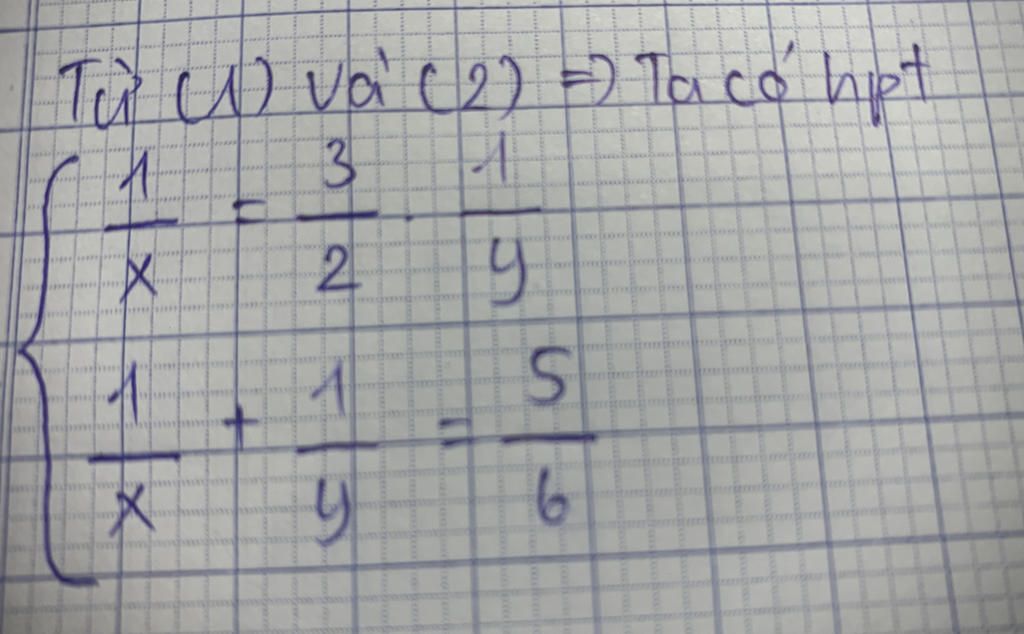 Từ (1) và (2) => Ta có hpt
{ 1/x = 3/2 . 1/y
1/x + 1/y = 5/6